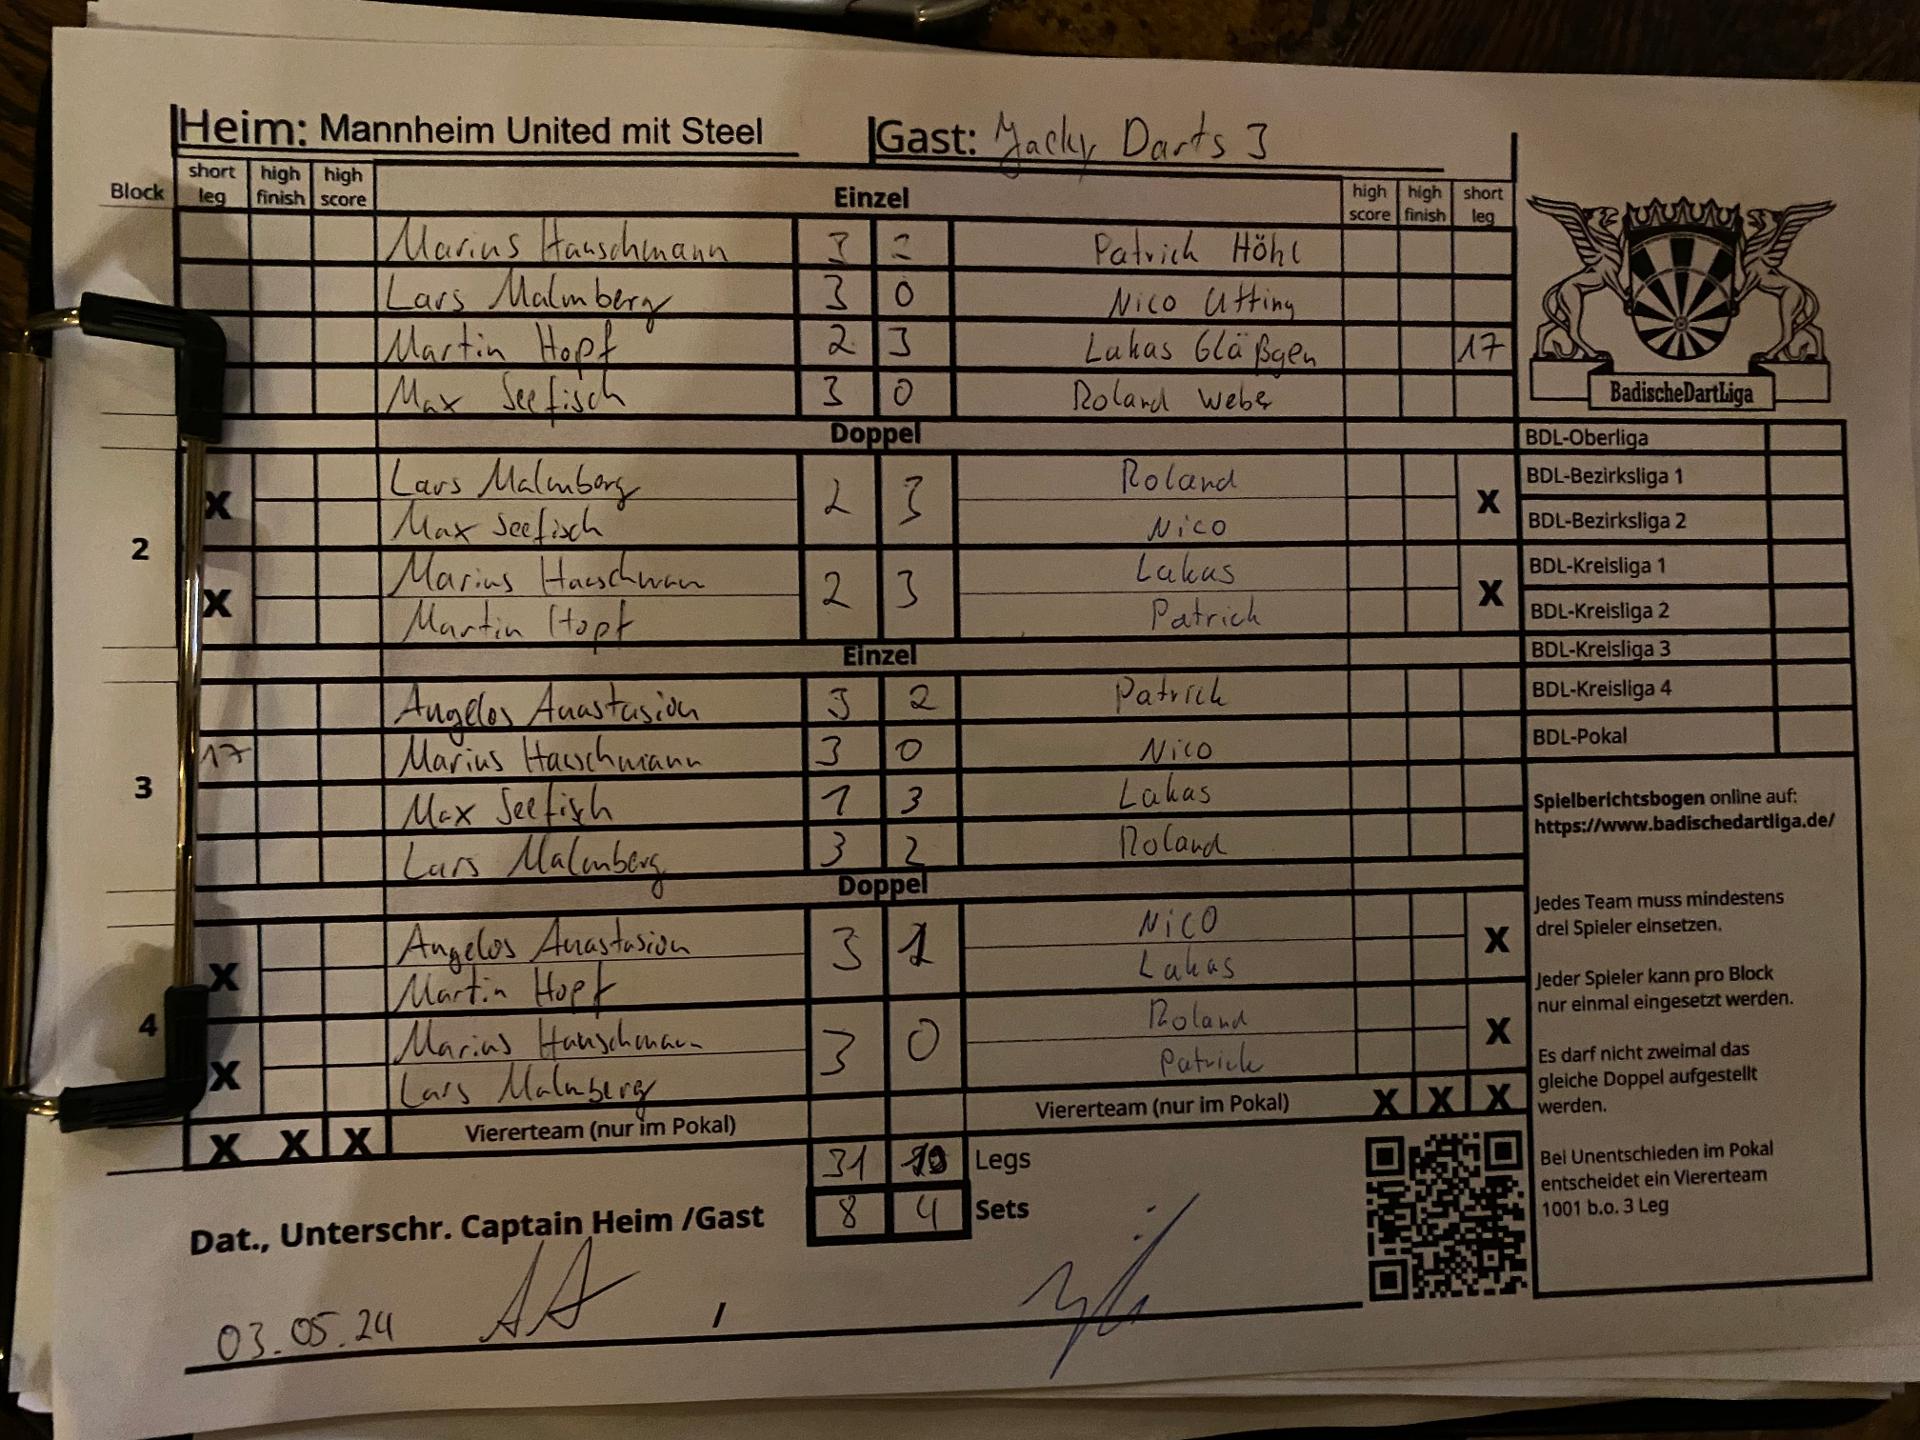 Heim: Mannheim United mit Steel Gast: Jacky Darts 3
Block short leg high finish high score Einzel high score high finish short leg
Marius Hauschmann 3 2 Patrich Höhl
Lars Malmberg 3 0 Nico Utting
Martin Hopf 2 3 Lukas Gläßgen 17
Max Seefisch 3 0 Roland Weber
Doppel
2
X Lars Malmberg 2 3 Roland X
Max Seefisch Nico
X Marius Hauschman 2 3 Lukas X
Martin Hopf Patrick
Einzel
3
Angelos Anastasiou 3 2 Patrick
17 Marius Hauschmann 3 0 Nico
Max Seefisch 1 3 Lukas
Lars Malmberg 3 2 Roland
Doppel
4
X Angelos Anastasiou 3 1 Nico X
Martin Hopf Lukas
X Marius Hauschmann 3 0 Roland X
Lars Malmberg Patrick
X X X Viererteam (nur im Pokal) Viererteam (nur im Pokal) X X X
31 19 Legs
8 4 Sets
Dat., Unterschr. Captain Heim /Gast
03.05.24 /
BadischeDartLiga
BDL-Oberliga
BDL-Bezirksliga 1
BDL-Bezirksliga 2
BDL-Kreisliga 1
BDL-Kreisliga 2
BDL-Kreisliga 3
BDL-Kreisliga 4
BDL-Pokal
Spielberichtsbogen online auf:
https://www.badischedartliga.de/
Jedes Team muss mindestens
drei Spieler einsetzen.
Jeder Spieler kann pro Block
nur einmal eingesetzt werden.
Es darf nicht zweimal das
gleiche Doppel aufgestellt
werden.
Bei Unentschieden im Pokal
entscheidet ein Viererteam
1001 b.o. 3 Leg